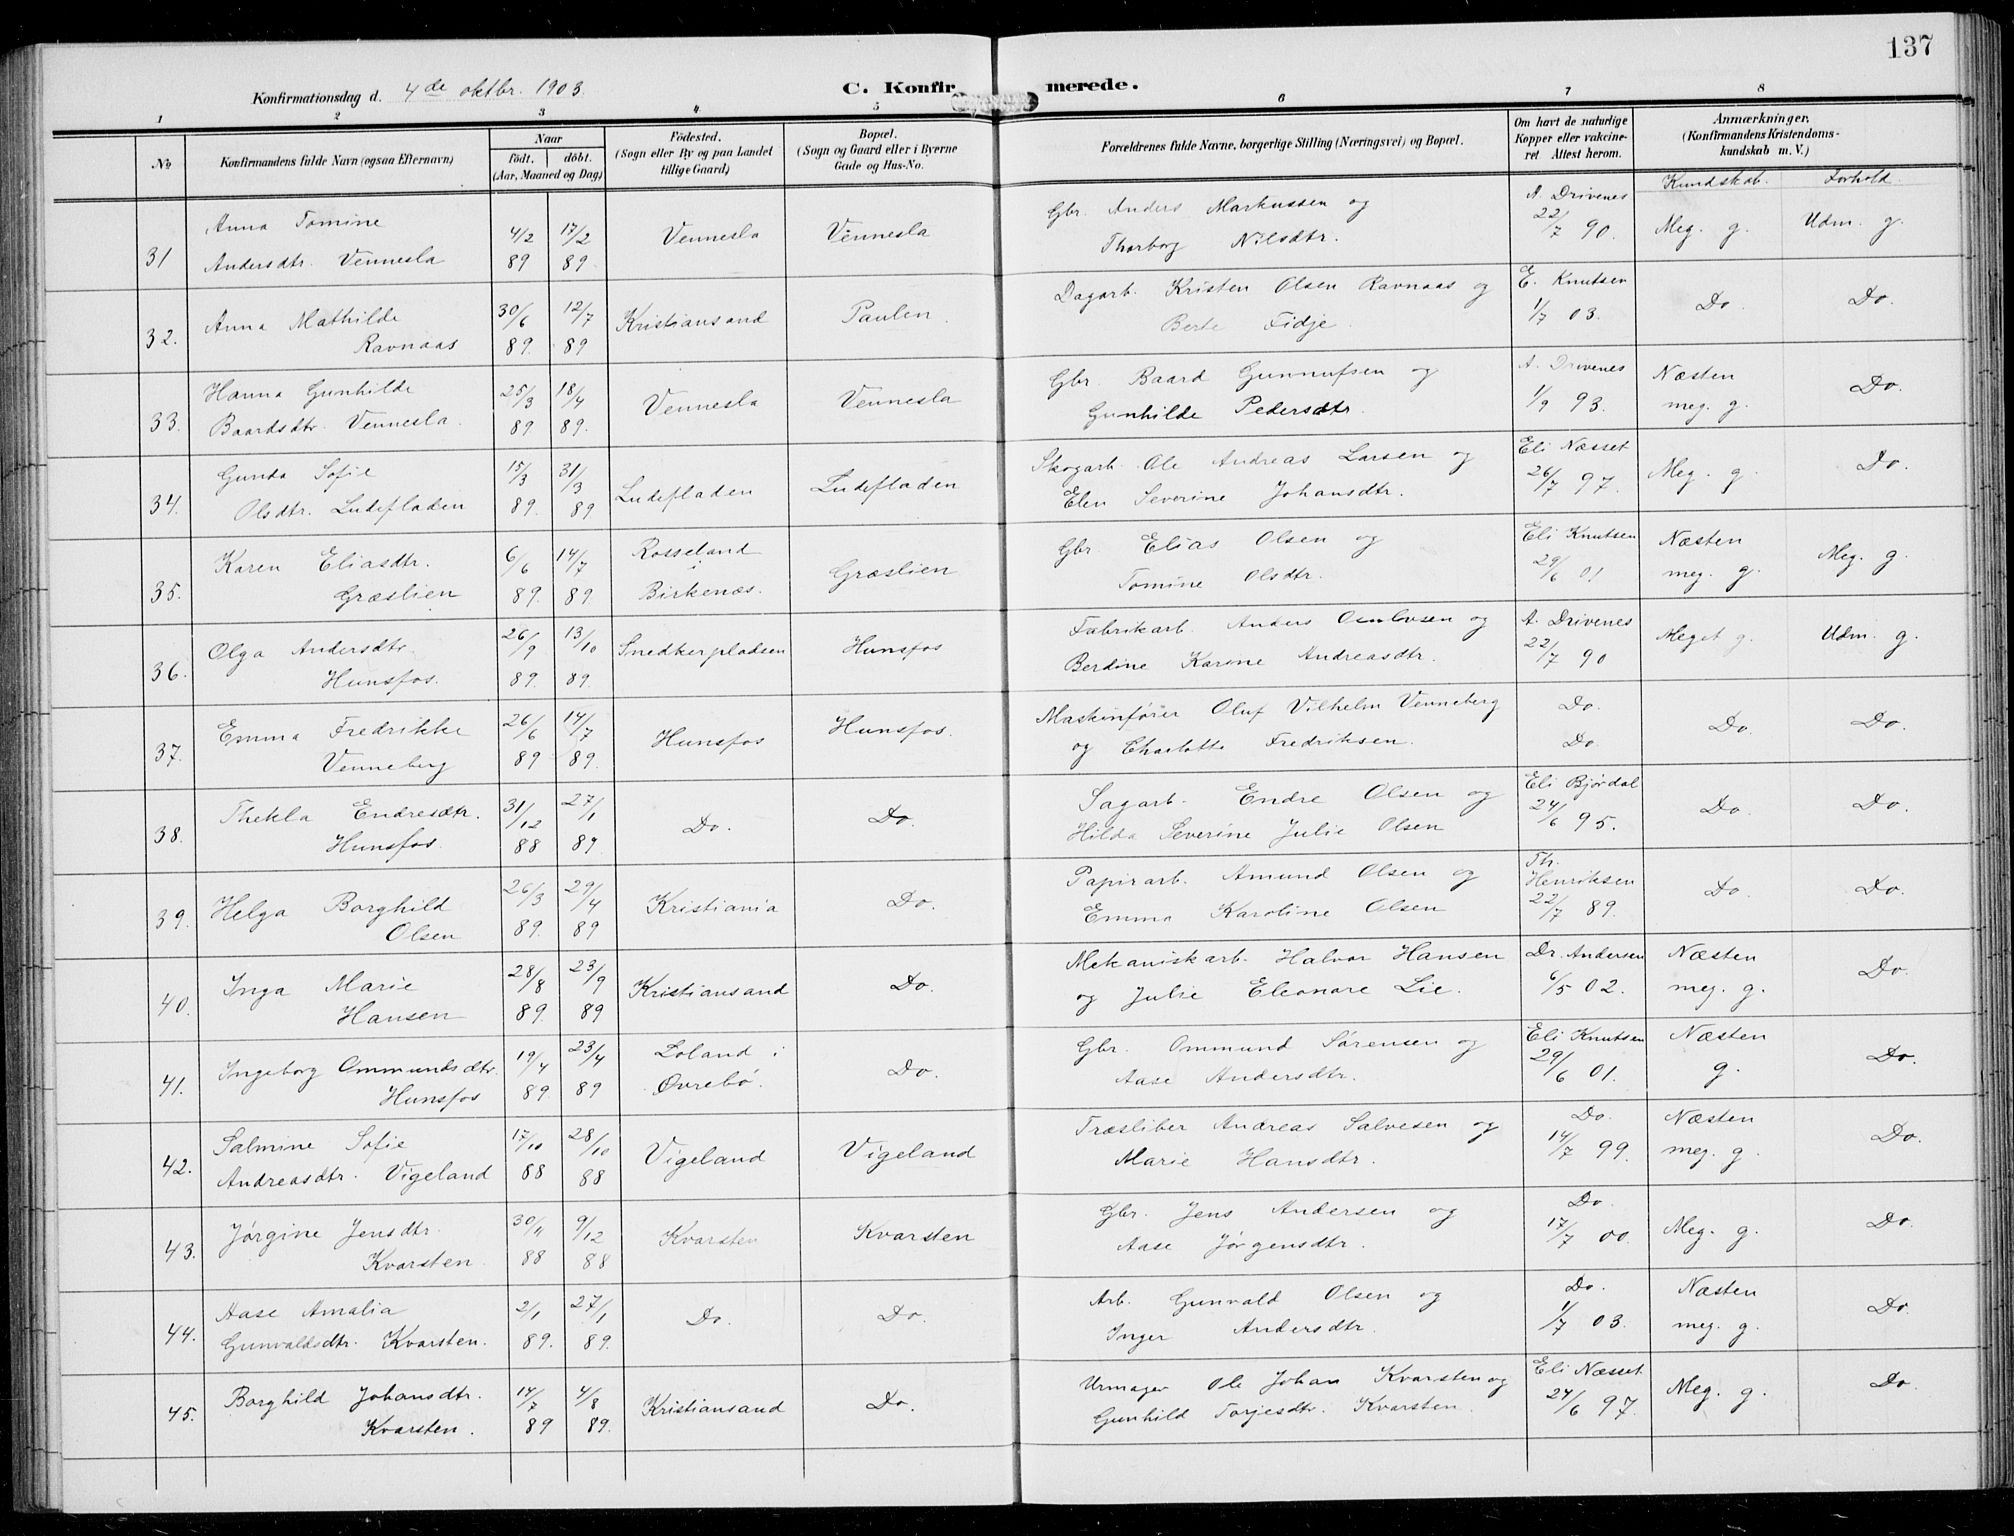 137
Konfirmationsdag d. 4de oktbr. 1903.
C. Konfirmerede.
1 2 3 4 5 6 7 8
No
Konfirmandens fulde Navn (ogsaa Efternavn)
Naar
født. døbt.
(Aar, Maaned og Dag)
Fødested.
(Sogn eller By og paa Landet
tillige Gaard)
Bopæl.
(Sogn og Gaard eller i Byerne
Gade og Hus-No.
Forældrenes fulde Navne, borgerlige Stilling (Næringsvei) og Bopæl.
Om havt de naturlige
Kopper eller vakcine-
ret Attest herom.
Anmærkninger.
(Konfirmandens Kristendoms-
kundskab m. V.)
Kundskab. Forhold.
31 Anna Tomine
Andersdtr. Vennesla
4/2 89 17/2 89. Vennesla Vennesla
Gbr. Anders Markussen og
Thorborg Nilsdtr.
A. Drivenes
22/7 90. Meg. g. Udm. g.
32. Anna Mathilde
Ravnaas
30/6 89. 12/7 89 Kristiansand Paulen.
Dagarb. Kristen Olsen Ravnaas og
Berte Fidje.
E. Knutsen
1/7 03. Do. Do.
33. Hanna Gunhilde
Baardsdtr. Vennesla.
25/3 89 18/4 89. Vennesla Vennesla
Gbr. Baard Gunnufsen og
Gunhilde Pedersdtr.
A. Drivenes
1/9 93. Næsten
meg. g. Do.
34. Gunda Sofie
Olsdtr. Ludefladen
15/3 89. 31/3 89 Ludefladen Ludefladen
Skogarb. Ole Andreas Larsen og
Elen Severine Johansdtr.
Eli Næsset
26/7 97. Meg. g. Do.
35. Karen Eliasdtr.
Græslien
6/6 89. 14/7 89. Rosseland
i
Birkenæs. Græslien
Gbr. Elias Olsen og
Tomine Olsdtr.
Eli Knutsen
29/6 01 Næsten
meg. g. Meg. g.
36. Olga Andersdtr.
Hunsfos.
26/9 89. 13/10 89. Snedkerpladsen Hunsfos
Fabrikarb. Anders Osulvsen og
Berdine Karine Andreasdtr.
A. Drivenes
22/7 90 Meget g. Udm. g.
37. Emma Fredrikke
Venneberg
26/6 89 14/7 89. Hunsfos Hunsfos.
Maskinfører Oluf Vilhelm Venneberg
og Charlotte Fredriksen.
Do.
Do. Do. Do.
38. Thekla Endresdtr.
Hunsfos.
31/12 88 27/1 89. Do. Do.
Sagarb. Endre Olsen og
Hilda Severine Julie Olsen
Eli Bjørdal
24/6 95. Do. Do.
39. Helga Borghild
Olsen
26/3 89. 29/4 89 Kristiania Do.
Papirarb. Amund Olsen og
Emma Karoline Olsen
Th.
Henriksen
22/7 89. Do. Do.
40. Inga Marie
Hansen
28/8 89. 23/9 89 Kristiansand Do.
Mekaniskarb. Halvor Hansen
og Julie Eleonore Lie.
Dr. Andersen
6/5 02. Næsten
meg. g. Do.
41. Ingeborg Ommundsdtr.
Hunsfos
19/4 89. 23/4 89 Loland i
Øvrebø. Do.
Gbr. Ommund Sørensen og
Aase Andersdtr.
Eli Knutsen
29/6 01. Næsten
g. Do.
42. Salmine Sofie
Andreasdtr. Vigeland
17/10 88 28/10 88 Vigeland Vigeland
Træsliber Andreas Salvesen og
Marie Hansdtr.
Do.
14/7 99. Næsten
meg. g. Do.
43. Jørgine Jensdtr.
Kvarsten.
30/11 88 9/12 88 Kvarsten Kvarsten
Gbr. Jens Andersen og
Aase Jørgensdtr.
Do.
17/7 00. Meg. g. Do.
44. Aase Amalia
Gunvaldsdtr. Kvarsten.
2/1 89. 27/1 89. Do. Do.
Arb. Gunvald Olsen og
Inger Andersdtr.
Do.
1/7 03. Næsten
meg. g. Do.
45. Borghild Johansdtr.
Kvarsten.
14/7 89 4/8 89. Kristiansand Do.
Urmager Ole Johan Kvarsten og
Gunhild Torjesdtr. Kvarsten.
Eli Næsset
24/6 97. Meg. g. Do.